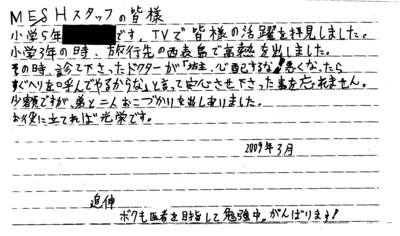 MESHスタッフの皆様
小学5年 です。TVで皆様の活躍を拝見しました。
小学3年の時、旅行先の西表島で高熱を出しました。
その時、診て下さったドクターが「坊主、心配するな!悪くなったら
すぐヘリを呼んでやるからな」と言って安心させ下さった事を忘れません。
少額ですが、弟と二人おこづかいを出しあいました。
お役に立てれば光栄です。
2009年3月
追伸
ボクも医者を目指して勉強中。がんばります!